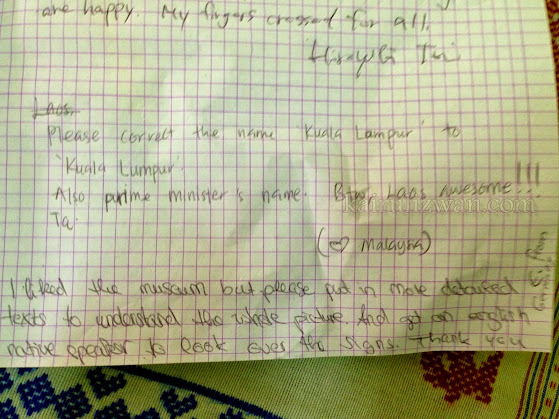 are happy. My fingers crossed for all.
Laos.
Please correct the name 'Kuala Lampur' to
'Kuala Lumpur'.
Also prime minister's name. Btw, Laos Awesome!!!
Ta.
karamzwan.com
(♡ Malaysia)
I liked the museum but please put in more detailed
texts to understand the whole picture. And get an english
native speaker to look over the signs. Thank you